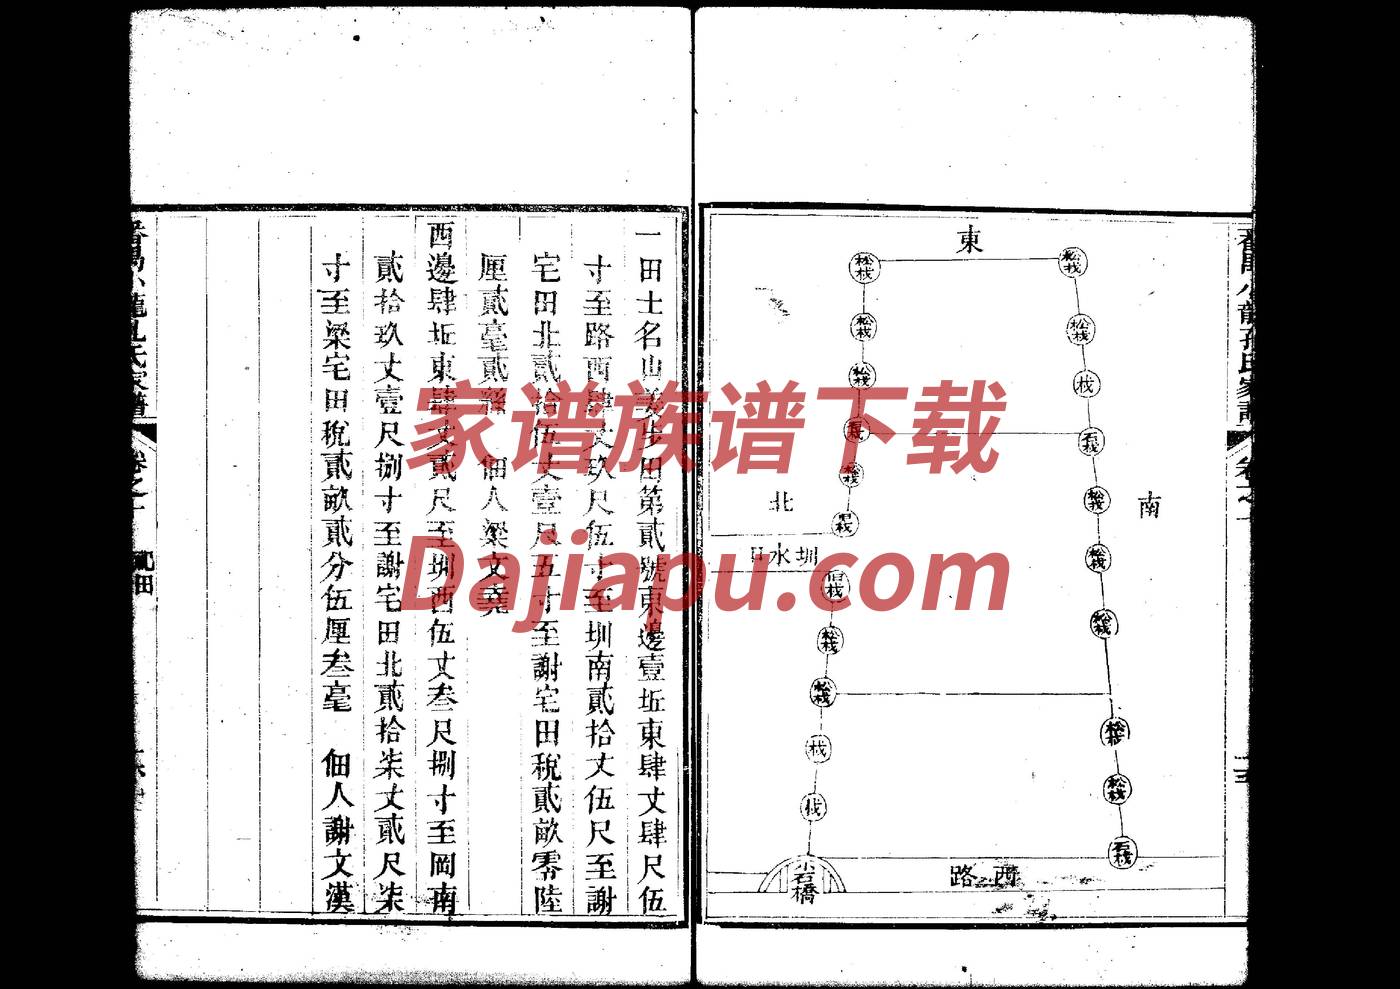 東
松栈
松栈
松栈
石栈
松栈
栈
松栈
松栈
栈
石栈
松栈
松栈
松栈
松栈
松栈
石栈
南
北
圳水口
松栈
松栈
栈
栈
石橋
西路
一田土名山姜步田第貳號東邊壹坵東肆丈肆尺伍
寸至路西肆丈玖尺伍寸至圳南貳拾丈伍尺至謝
宅田北貳拾伍丈壹尺五寸至謝宅田稅貳畝零陸
厘貳毫貳絲 佃人梁文堯
西邊肆坵東肆丈貳尺至圳西伍丈叁尺捌寸至岡南
貳拾玖丈壹尺捌寸至謝宅田北貳拾柒丈貳尺柒
寸至梁宅田稅貳畝貳分伍厘叁毫 佃人謝文漢
家谱族谱下载
Dajiapu.com